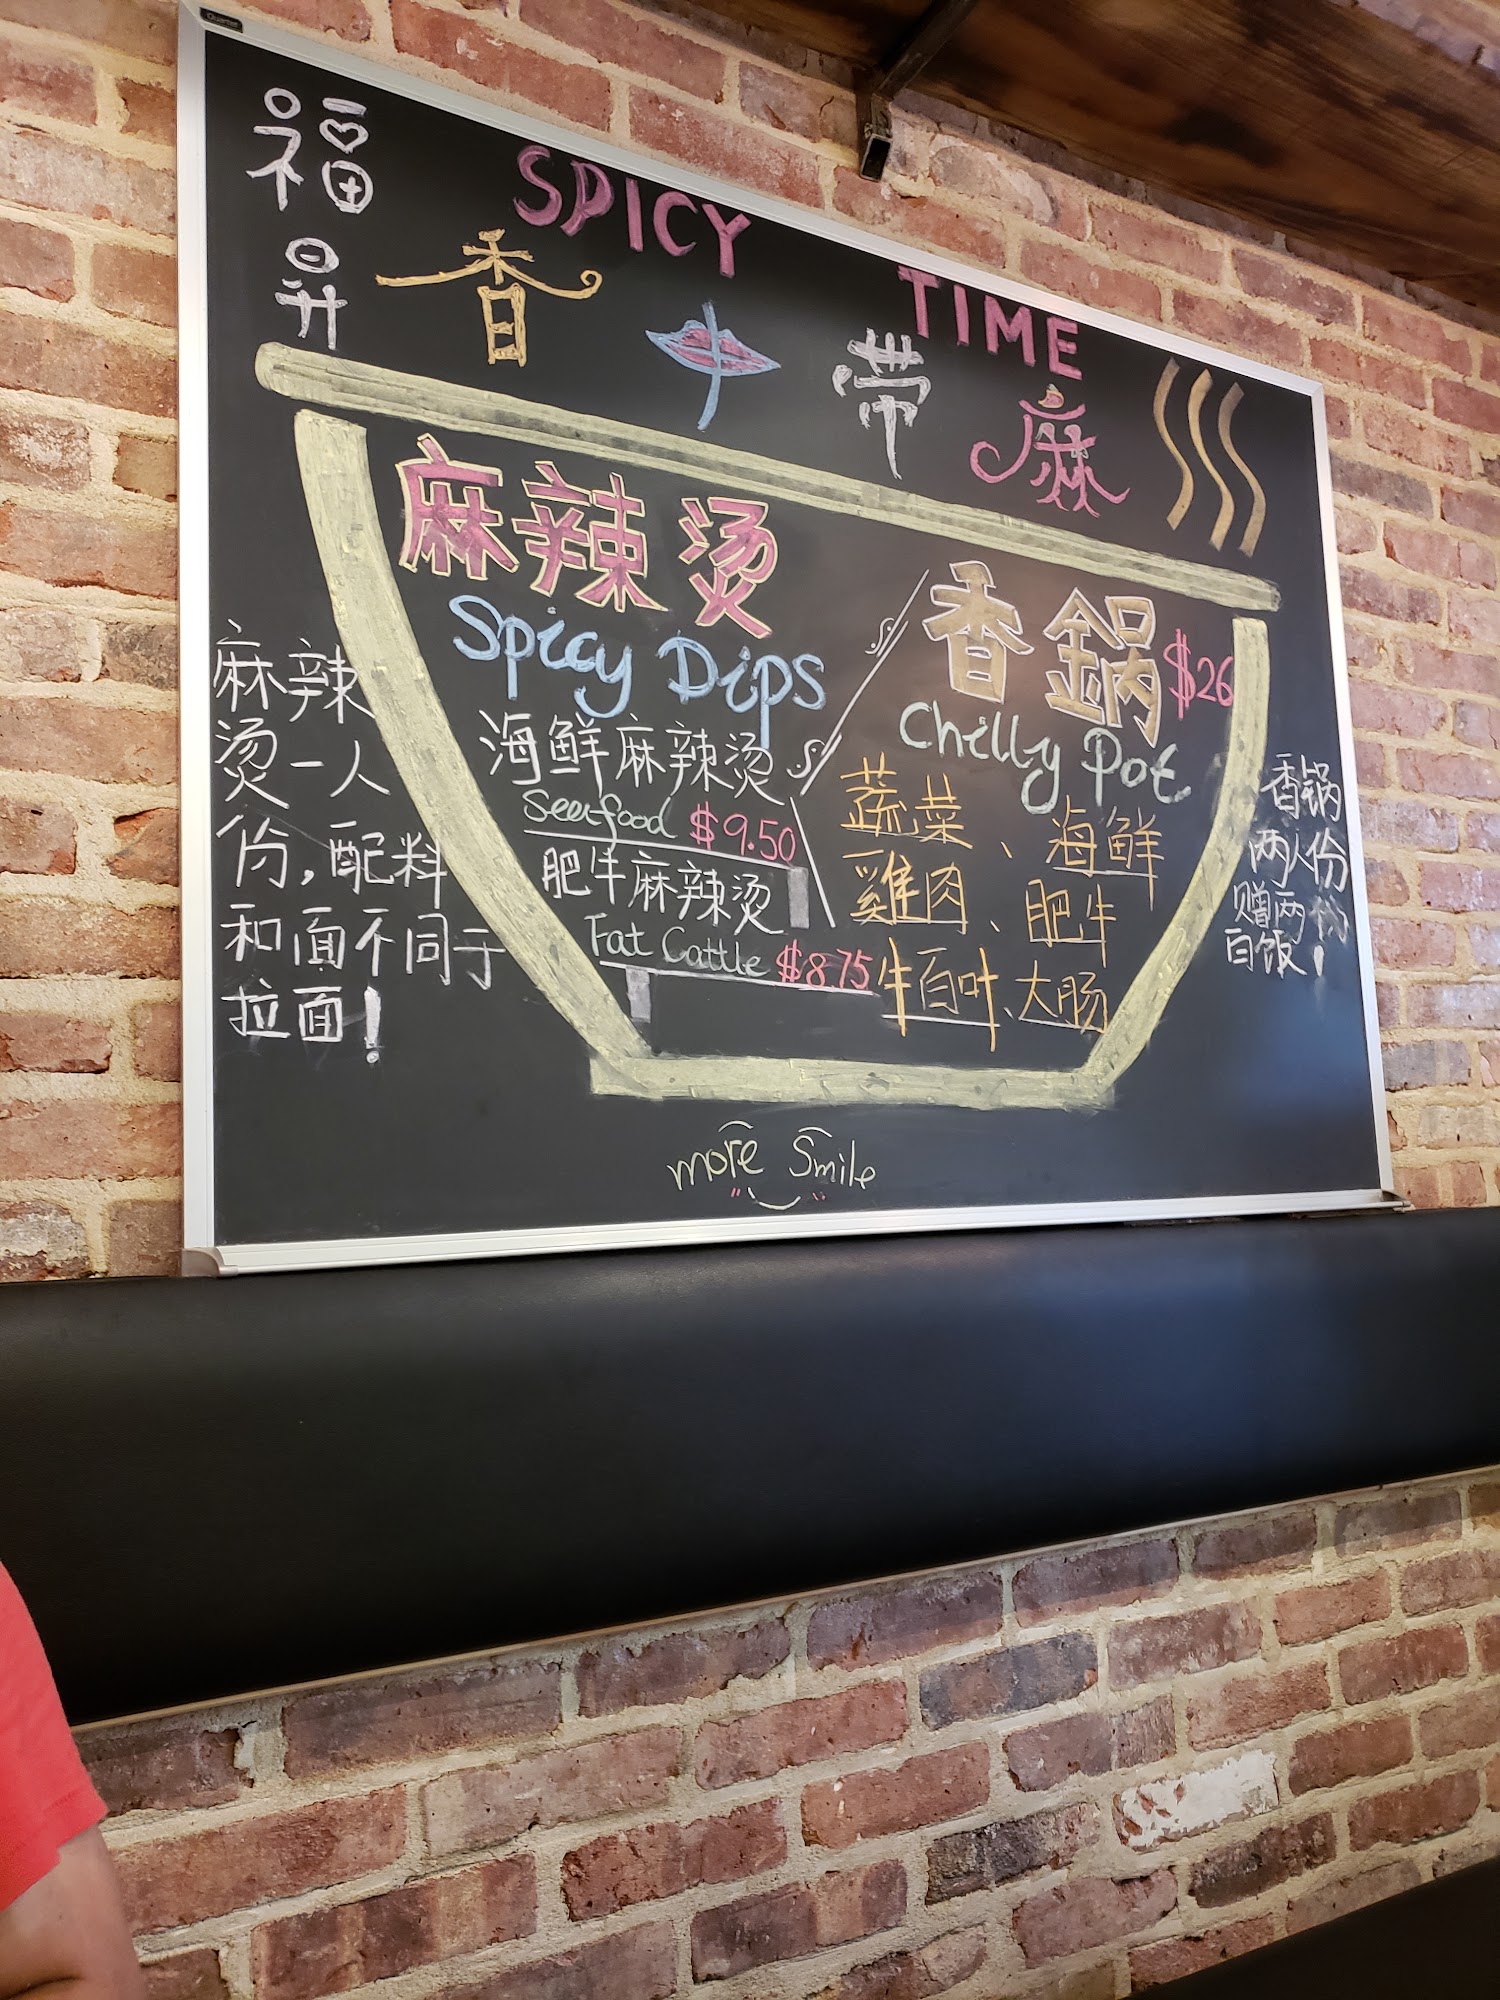 Quartet
福昇
SPICY TIME
香中带麻
麻辣烫
Spicy Dips
海鲜麻辣烫
Seafood $9.50
肥牛麻辣烫
Fat Cattle $8.75
香锅 $26
Chilly Pot
蔬菜、海鲜
雞肉、肥牛
牛百叶、大肠
麻辣
烫一人
份,配料
和面不同于
拉面!
香锅
两人份
赠两份
白饭!
more Smile